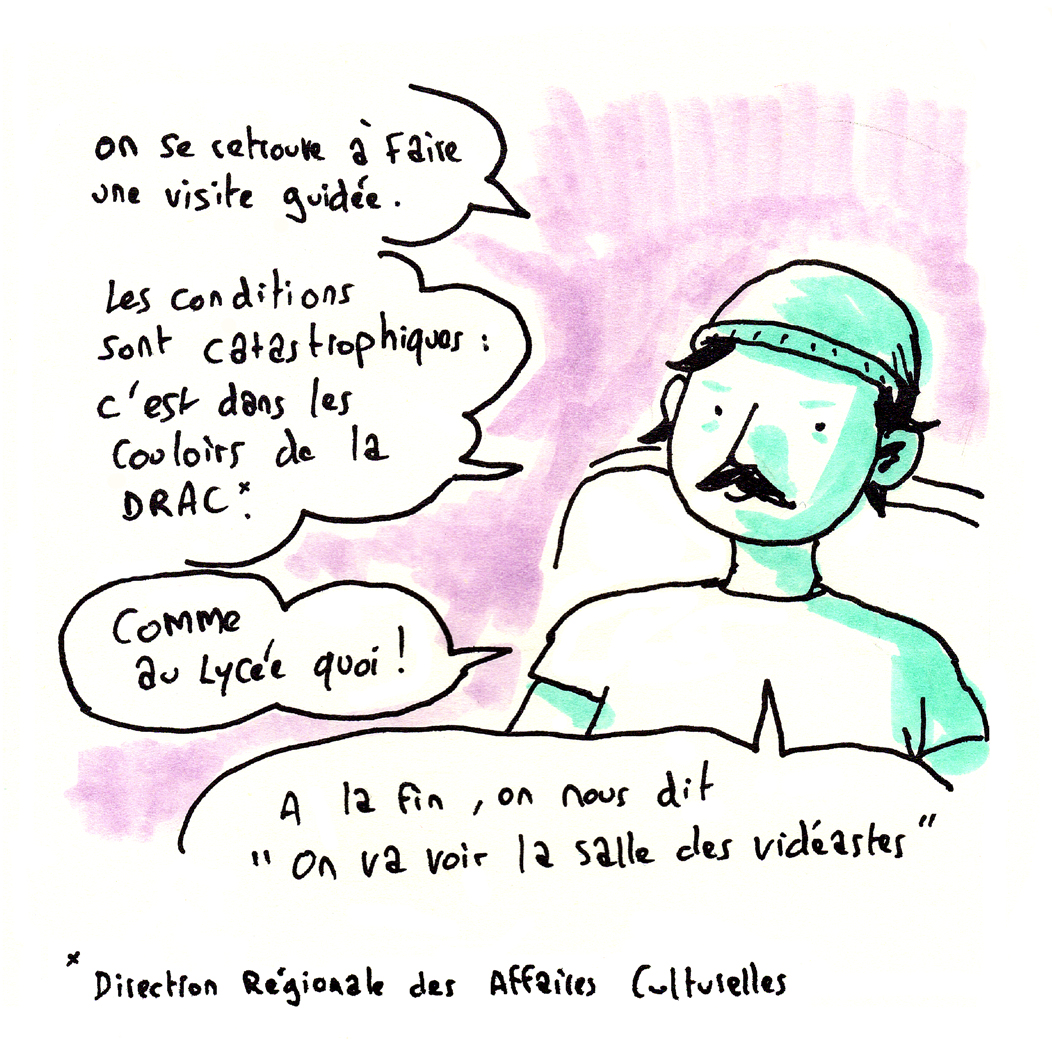 on se retrouve à faire
une visite guidée.
Les conditions
sont catastrophiques :
c'est dans les
couloirs de la
DRAC*.
Comme
au Lycée quoi !
A la fin, on nous dit
"On va voir la salle des vidéastes"
* Direction Régionale des Affaires Culturelles